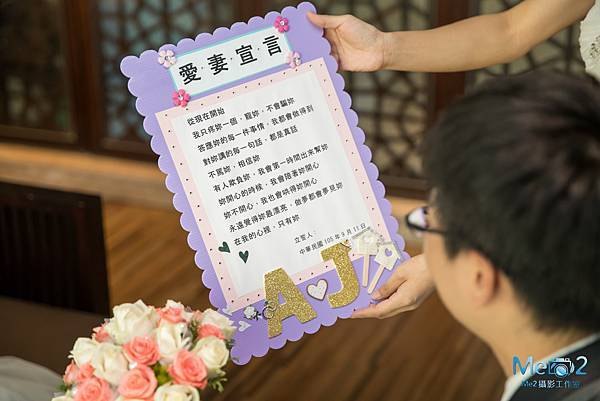 愛妻宣言
從現在開始
我只疼妳一個，寵妳，不會騙妳
答應妳的每一件事情，我都會做得到
對妳講的每一句話，都是真話
不罵妳，相信妳
有人欺負妳，我會第一時間出來幫妳
妳開心的時候，我會陪著妳開心
妳不開心，我也會哄得妳開心
永遠覺得妳最漂亮，做夢都會夢見妳
在我的心裡，只有妳
立誓人：
中華民國 105 年 9 月 11 日
AJ
Me2
Me2 攝影工作室